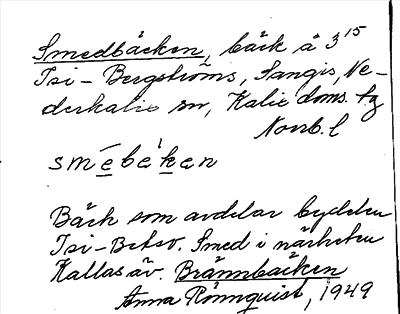 Smedbäcken, bäck å 3¹⁵
Isi-Bergströms, Sangis, Ne-
derkalix sn, Kalix doms. tg
Norrb. l
smèbä́ken
Bäck som avdelar bydelen
Isi-Betsv. Smed i närheten
Kallas äv. Brännbäcken
Anna Rönnquist, 1949